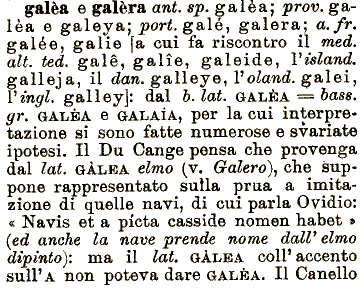 galèa e galèra ant. sp. galèa; prov. ga-
lèa e galeya; port. galé, galera; a. fr.
galée, galie [a cui fa riscontro il med.
alt. ted. galê, galîe, galeide, l'island.
galleja, il dan. galleye, l'oland. galei,
l'ingl. galley]: dal b. lat. GALÈA = bass.
gr. GALÈA e GALAÍA, per la cui interpre-
tazione si sono fatte numerose e svariate
ipotesi. Il Du Cange pensa che provenga
dal lat. GÀLEA elmo (v. Galero), che sup-
pone rappresentato sulla prua a imita-
zione di quelle navi, di cui parla Ovidio:
« Navis et a picta casside nomen habet »
(ed anche la nave prende nome dall' elmo
dipinto): ma il lat. GÀLEA coll' accento
sull'A non poteva dare GALÈA. Il Canello